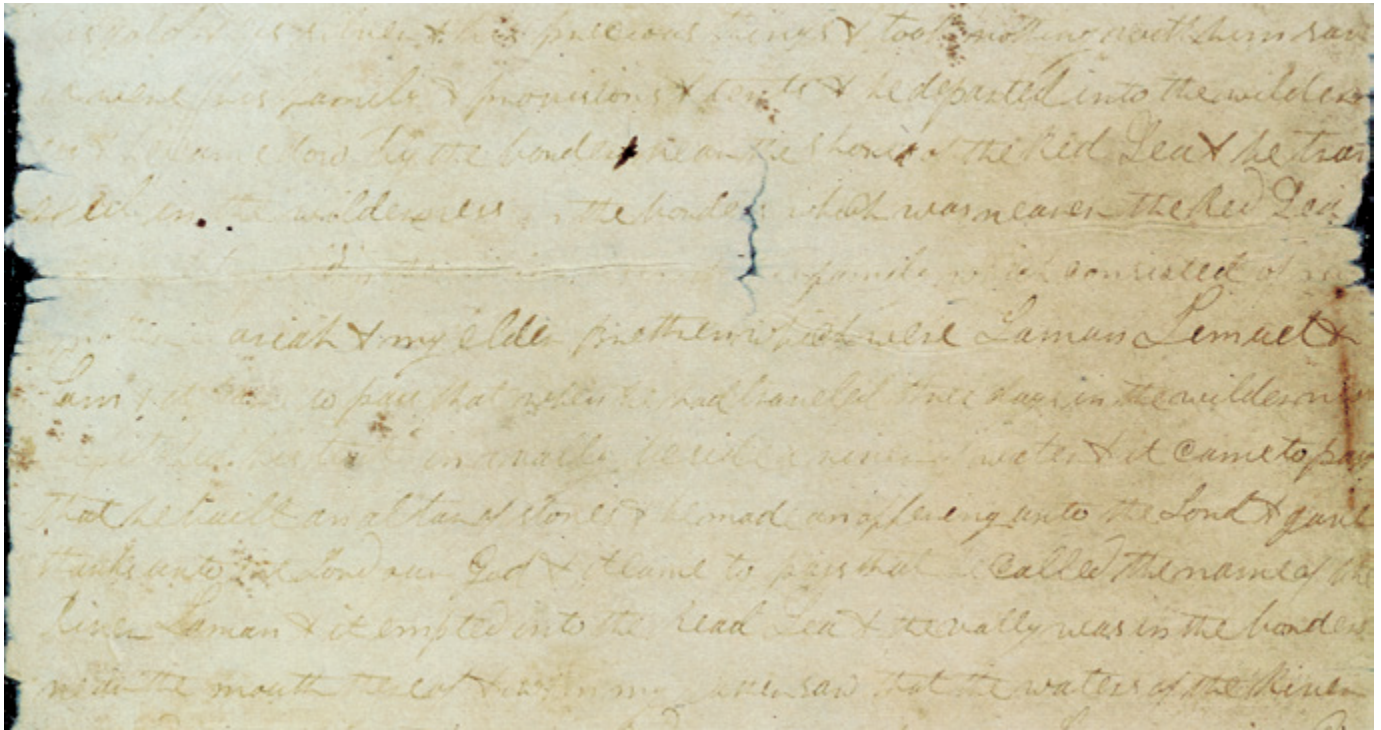 his gold & his silver & his precious things & took nothing with them save
it were his family & provisions & tents & he departed into the wilder
ness & he came down by the borders near the shore of the Red Sea & he trav
eled in the wilderness in the borders which was nearer the Red Sea
family which consisted of my
ariah & my elder brothers which were Laman Lemuel &
Sam & it came to pass that when he had traveled three days in the wilderness
he pitched his tent in a vally beside a river of water & it came to pass
that he built an altar of stones & he made an offering unto the Lord & gave
thanks unto the Lord our God & it came to pass that he called the name of the
River Laman & it emptied into the read Sea & the vally was in the borders
near the mouth thereof & when my father saw that the waters of the River